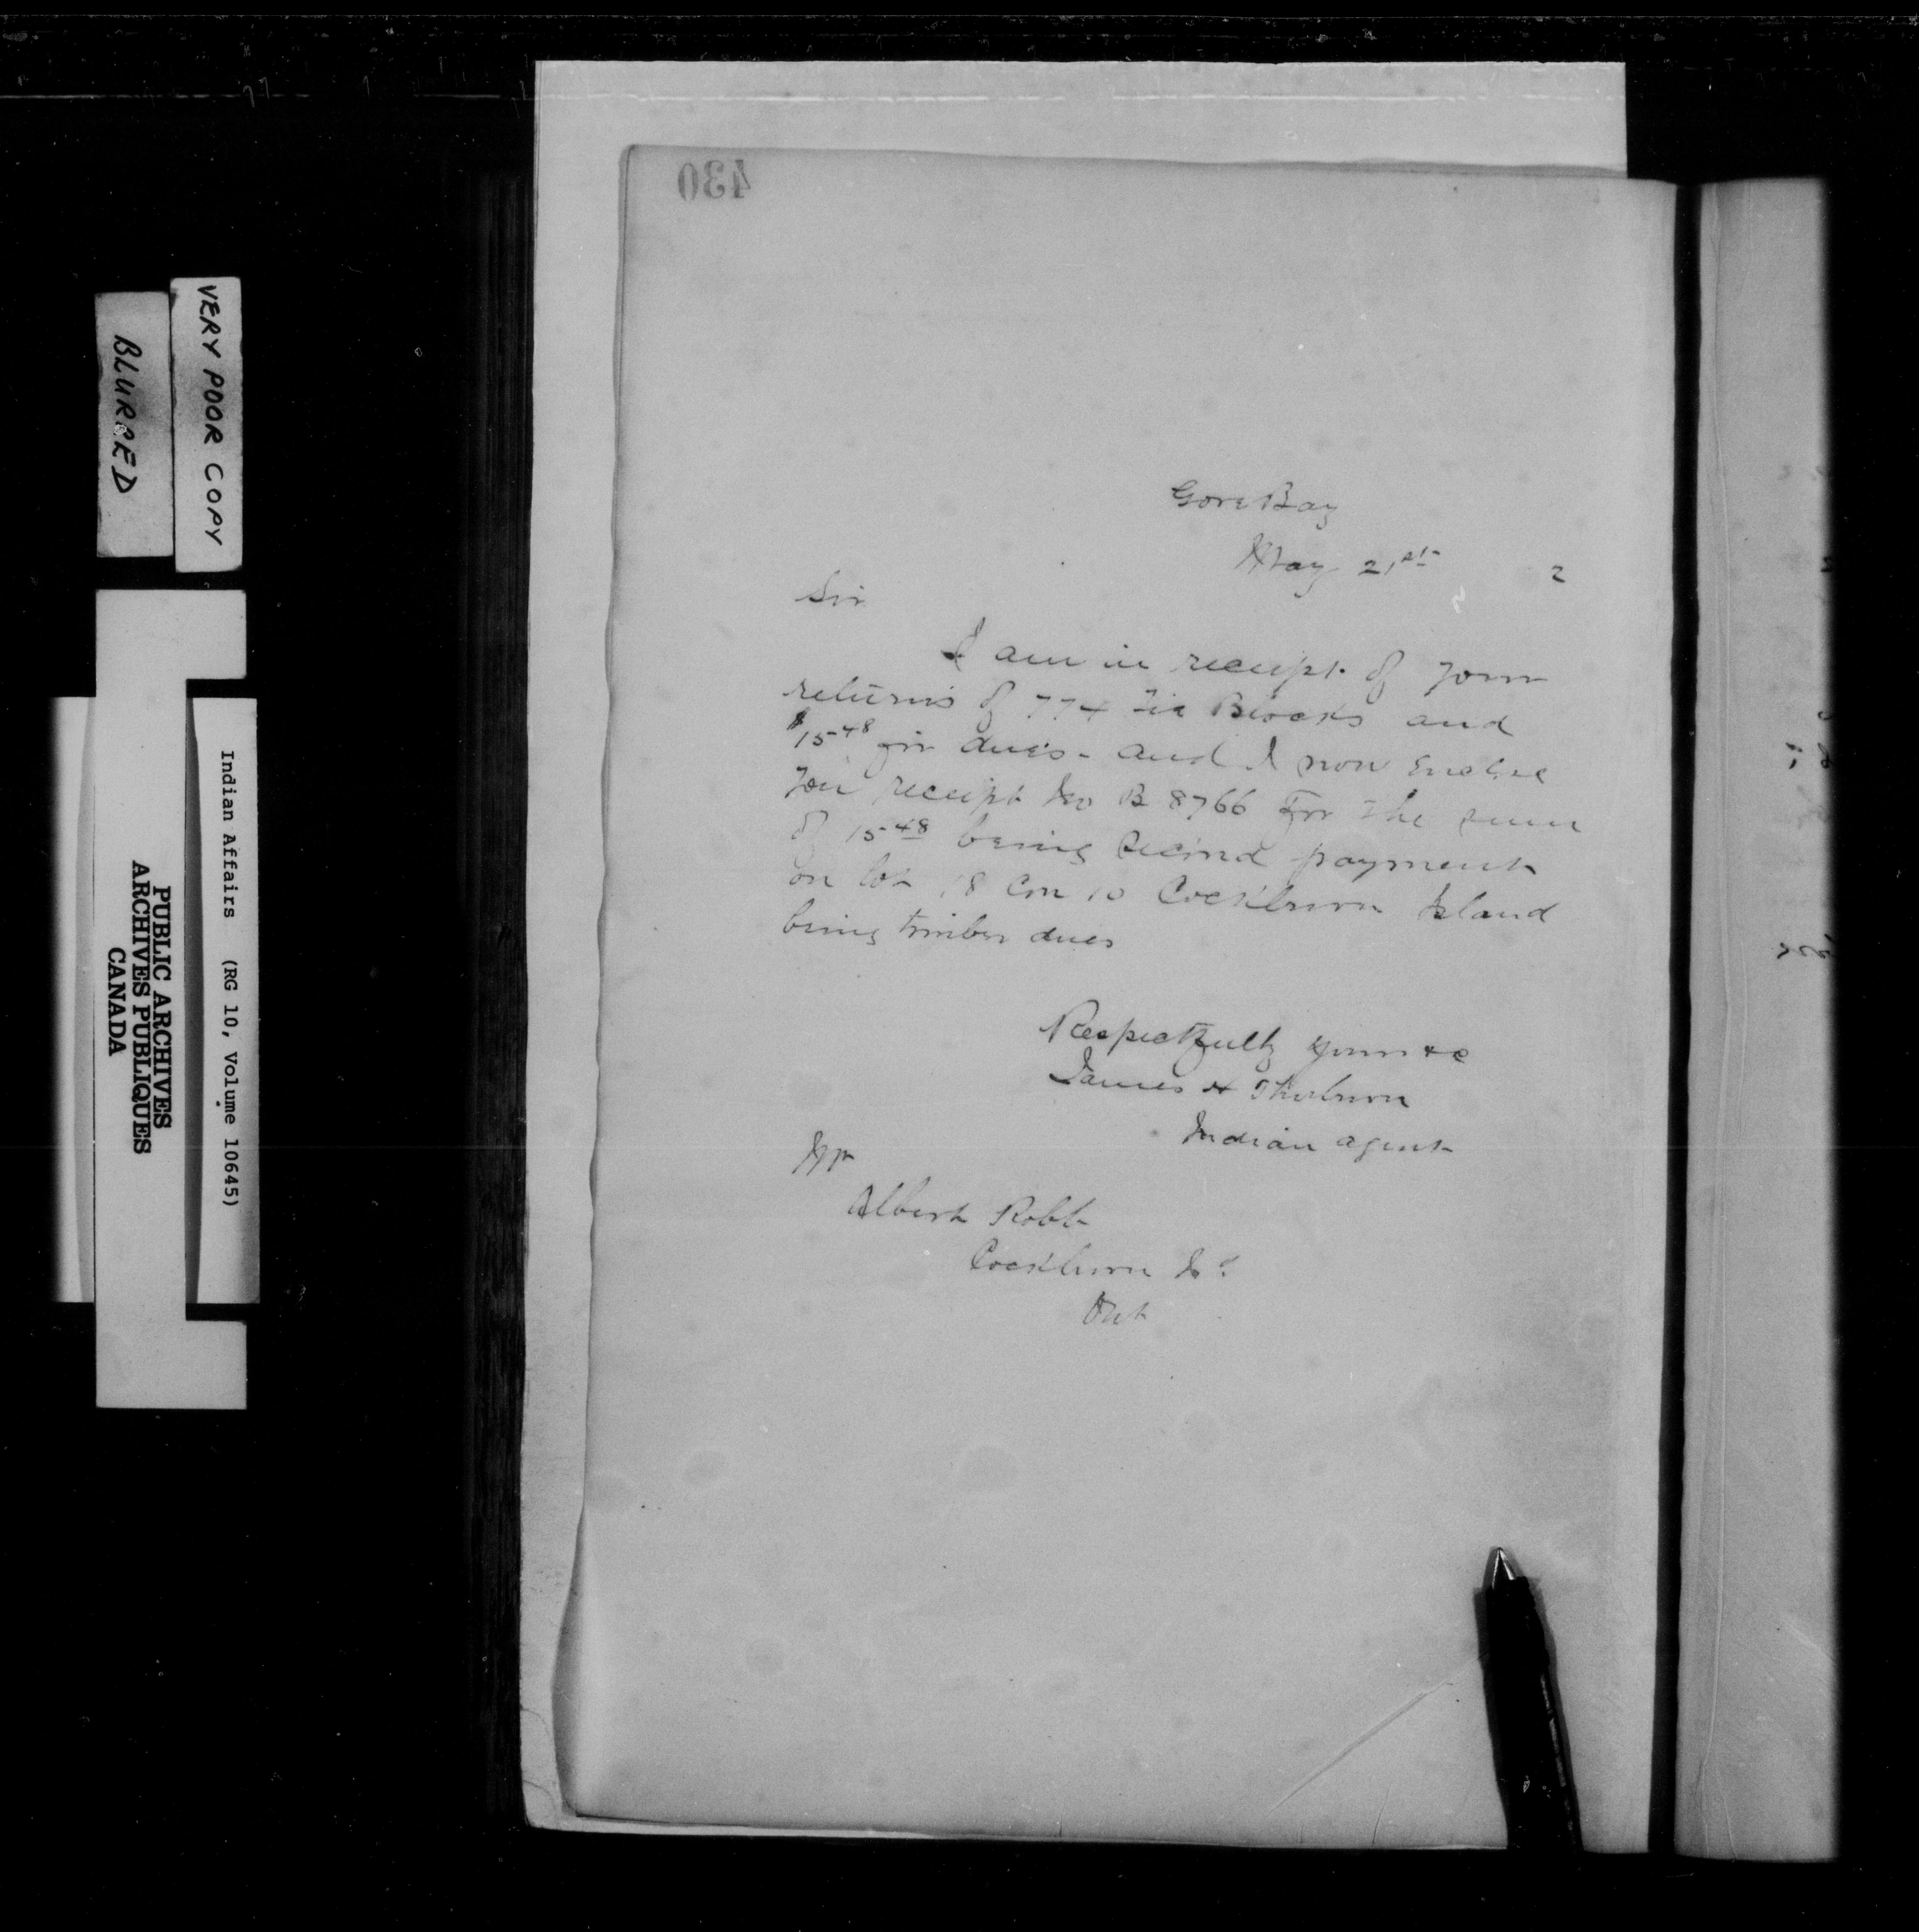 430
Gore Bay
May 21st 2
Sir
I am in receipt of your
returns of 774 Tie Blocks and
$15 48 for dues - and I now enclose
you receipt No B 8766 for the sum
of 15 48 being second payment
on lot 18 Con 10 Cockburn Island
being timber dues
Respectfully yours &c
James H Thorburn
Indian Agent
Mr
Albert Robb
Cockburn Id
Ont
VERY POOR COPY
BLURRED
Indian Affairs (RG 10, Volume 10645)
PUBLIC ARCHIVES
ARCHIVES PUBLIQUES
CANADA